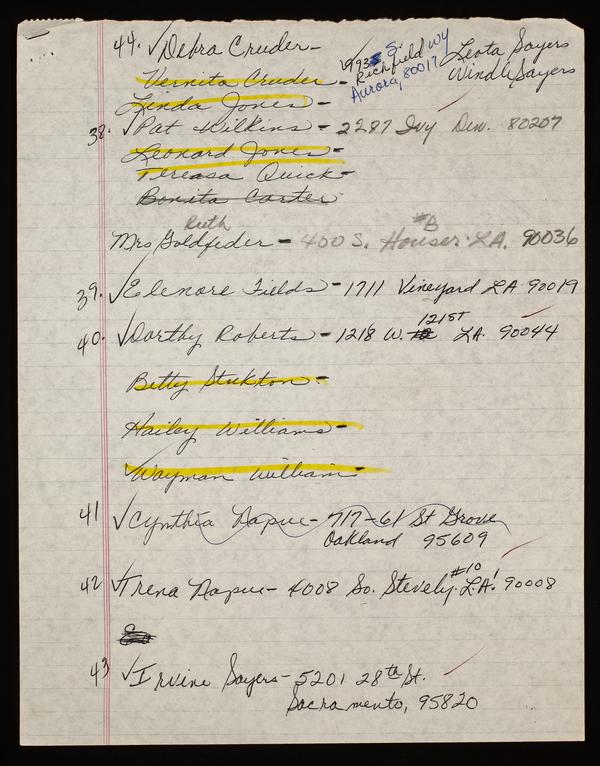 44. ✓Debra Cruder- 1993 S. Leota Sayers
Richfield Wy Windle Sayers
Vernita Cruder - Aurora, 80017
Linda Jones -
38. ✓Pat Wilkins - 2287 Ivy Den. 80207
Leonard Jones -
Tereasa Quick -
Bonita Carter
Ruth #B
Mrs Goldfeder - 400 S. Hauser. LA. 90036
39. ✓Elenore Fields - 1711 Vineyard LA 90019
121ST
40. ✓Dorthy Roberts - 1218 W. LA. 90044
Betty Stokton -
Hailey Williams -
Wayman Williams -
41 ✓Cynthia Napue - 717-61 St Grove
Oakland 95609
#10
42 ✓Trena Napue - 4008 So. Stevely. L.A. 90008
43 ✓Irvine Sayers - 5201 28th St.
Sacramento, 95820